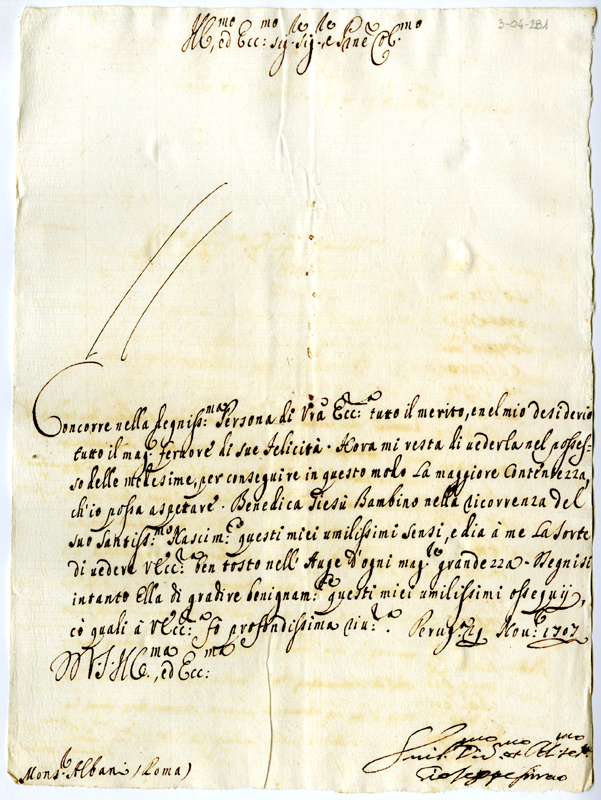 3-04-281
Ill.mo, ed Ecc:mo Sig.re Sig.re e Pne Col.mo
Concorre nella degniss:ma Persona di Vra Ecc:a tutto il merito, e nel mio desiderio
tutto il mag.r fervore di sue Felicità. Hora mi resta di uederla nel posses-
so delle medesime, per conseguire in questo modo La maggiore Contentezza,
ch'io possa aspetare. Benedica Giesù Bambino nella ricorrenza del
suo Santiss:mo Nascim:to questi miei umilissimi sensi, e dia à me La sorte
di uedere V Ecc:za ben tosto nell'Auge d'ogni mag:re grandezza. Degnisi
intanto Ella di gradire benignam:te questi miei umilissimi ossequij,
cõ quali à V Ecc:a fò profondissima riu:a. Perug.a Nou:b 1707
D V S Ill.ma, ed Ecc:ma
Mons.r Albani (Roma)
Giuseppe